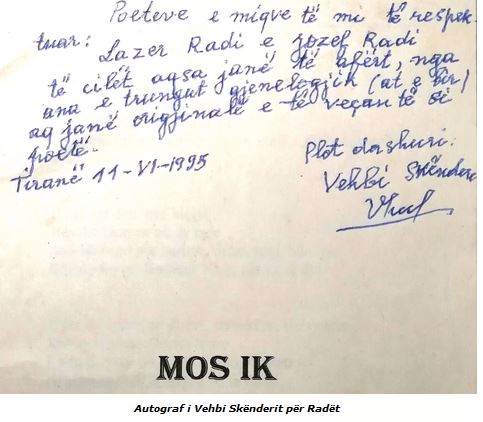 Poeteve e miqve të mi të respek-
tuar: Lazer Radi e Jozef Radi
të cilët aqsa janë të afërt, nga
ana e trungut gjenelogjik (at e bir)
aq janë origjinalë e të veçantë si
poetë.
Tiranë 11-VI-1995
Plot dashuri.
Vehbi Skënderi
MOS IK
Autograf i Vehbi Skënderit për Radët